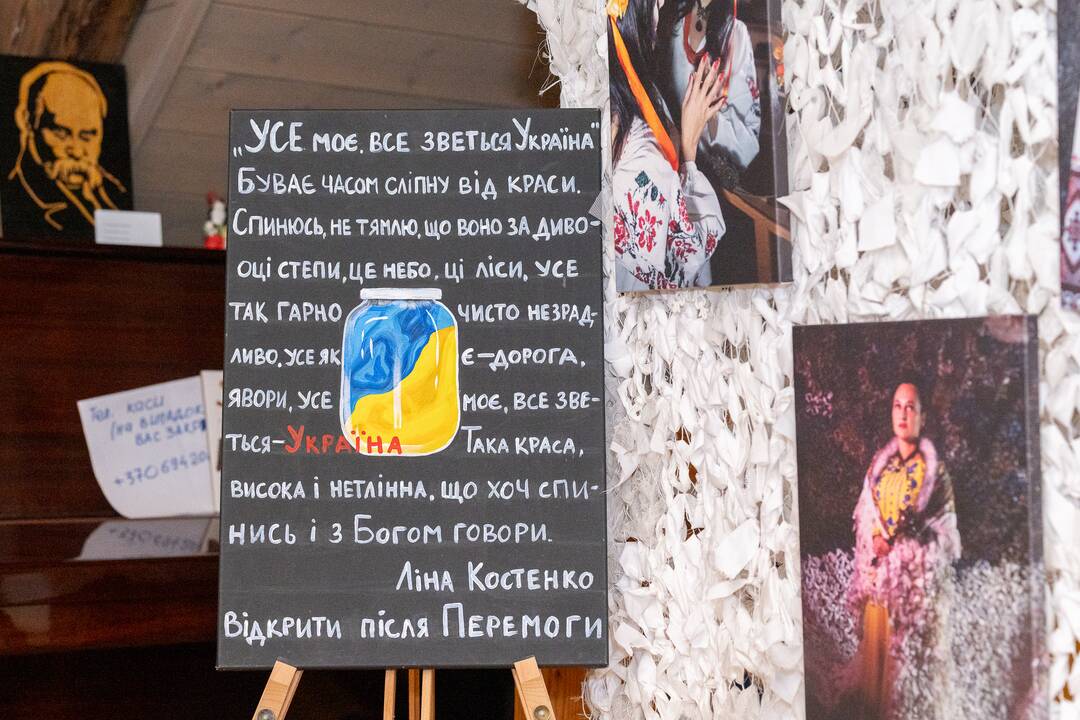 „УСЕ моє, все зветься Україна"
Буває часом сліпну від краси.
Спинюсь, не тямлю, що воно за диво-
оці степи, це небо, ці ліси, усе
так гарно чисто незрад-
ливо, усе як є-дорога,
явори, усе моє, все зве-
ться-Україна Така краса,
висока і нетлінна, що хоч спи-
нись і з Богом говори.
Ліна Костенко
Відкрити після Перемоги
Тел. каси
(на випадок
вас закр
+37069420